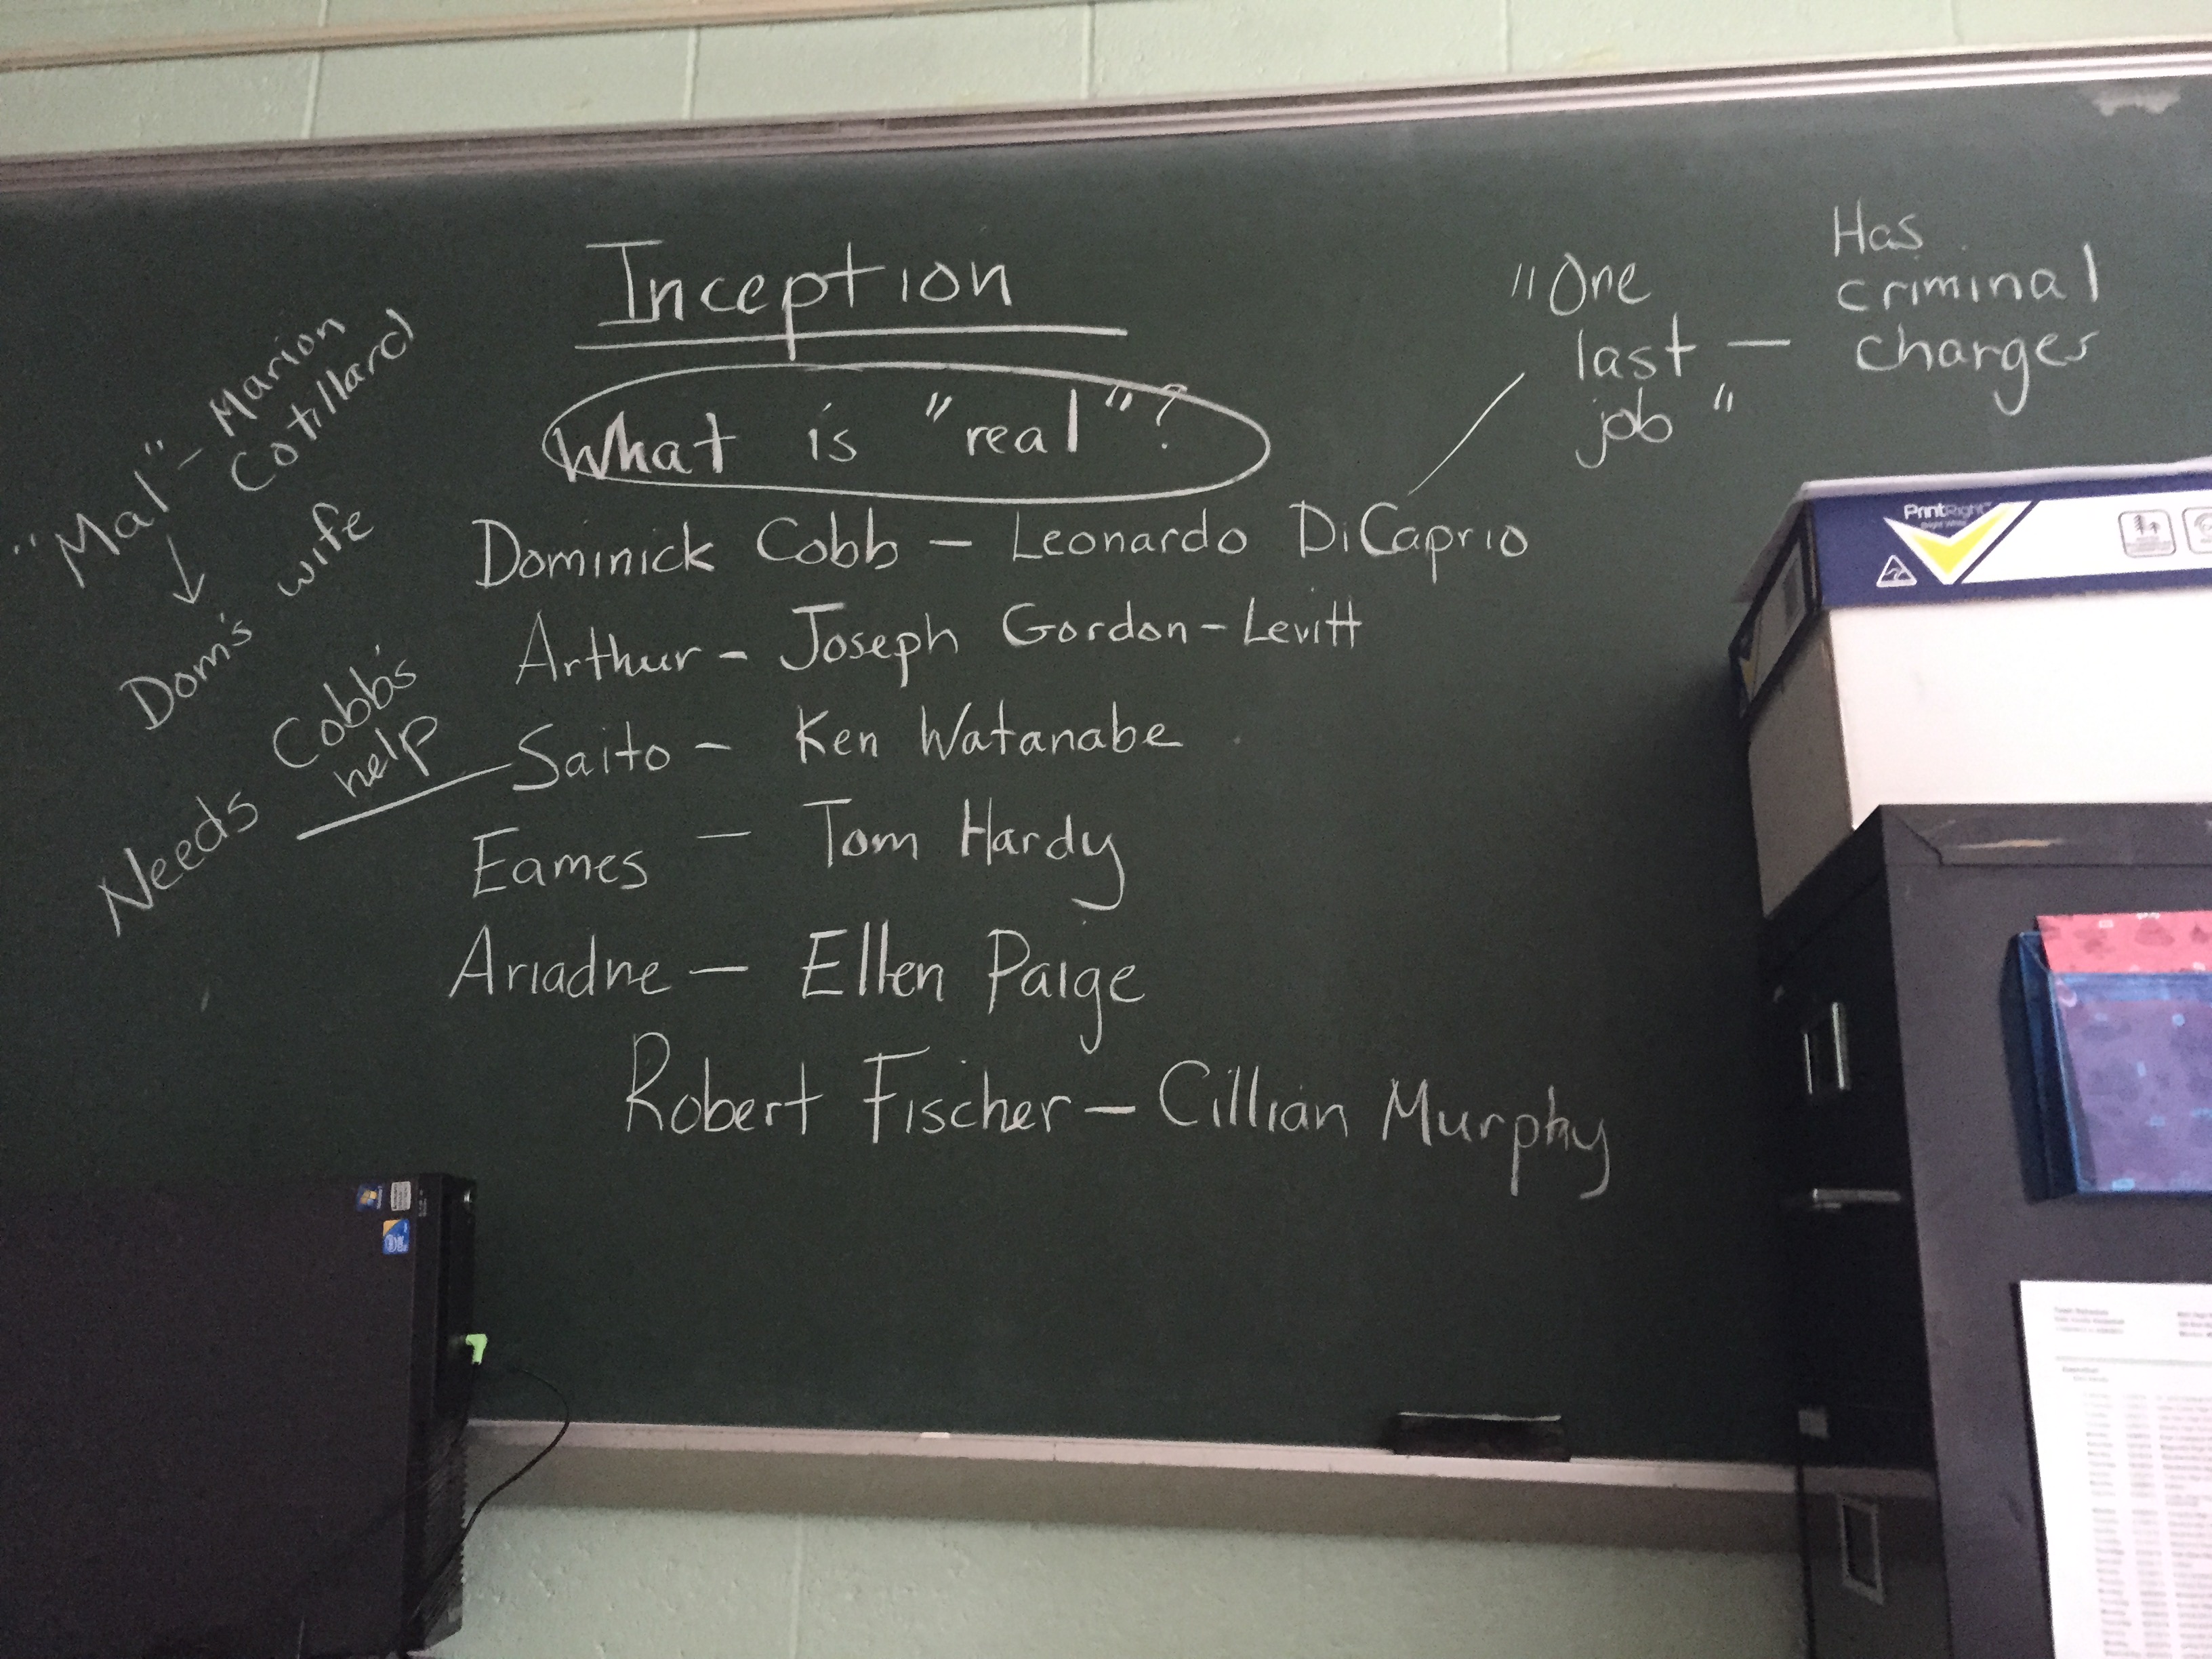 Inception
What is "real"?
"Mal" - Marion
Cotillard
Dom's wife
"One
last —
job"
Has
criminal
charges
Dominick Cobb — Leonardo DiCaprio
Arthur - Joseph Gordon-Levitt
Needs Cobb's
help
Saito - Ken Watanabe
Eames — Tom Hardy
Ariadne — Ellen Paige
Robert Fischer — Cillian Murphy
PrintRight
Bright White